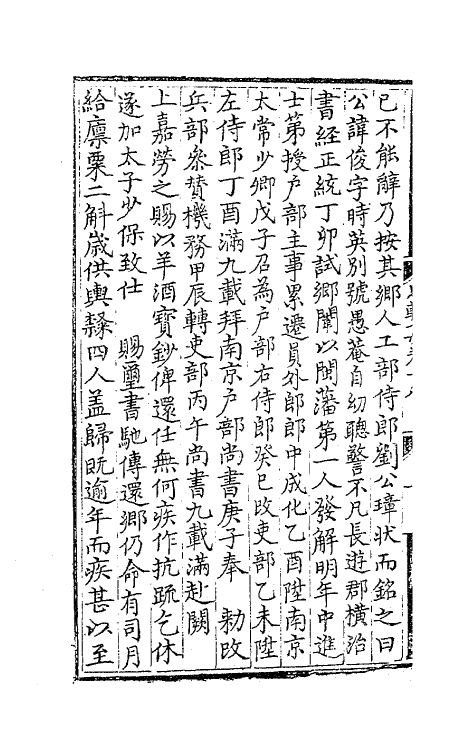 已不能辭乃按其鄉人工部侍郎劉公璋狀而銘之曰
公諱俊字時英別號愚菴自幼聰警不凡長遊郡橫治
書經正統丁卯試鄉闈以閩藩第一人發解明年中進
士第授户部主事累遷員外郎郎中成化乙酉陞南京
太常少卿戊子召為户部右侍郎癸巳改吏部乙未陞
左侍郎丁酉滿九載拜南京户部尚書庚子奉 勑改
兵部叅贊機務甲辰轉吏部丙午尚書九載滿赴闕
上嘉勞之賜以羊酒寶鈔俾還任無何疾作抗疏乞休
遂加太子少保致仕 賜璽書馳傳還鄉仍命有司月
給廪粟二斛歲供輿隸四人盖歸既逾年而疾甚以至